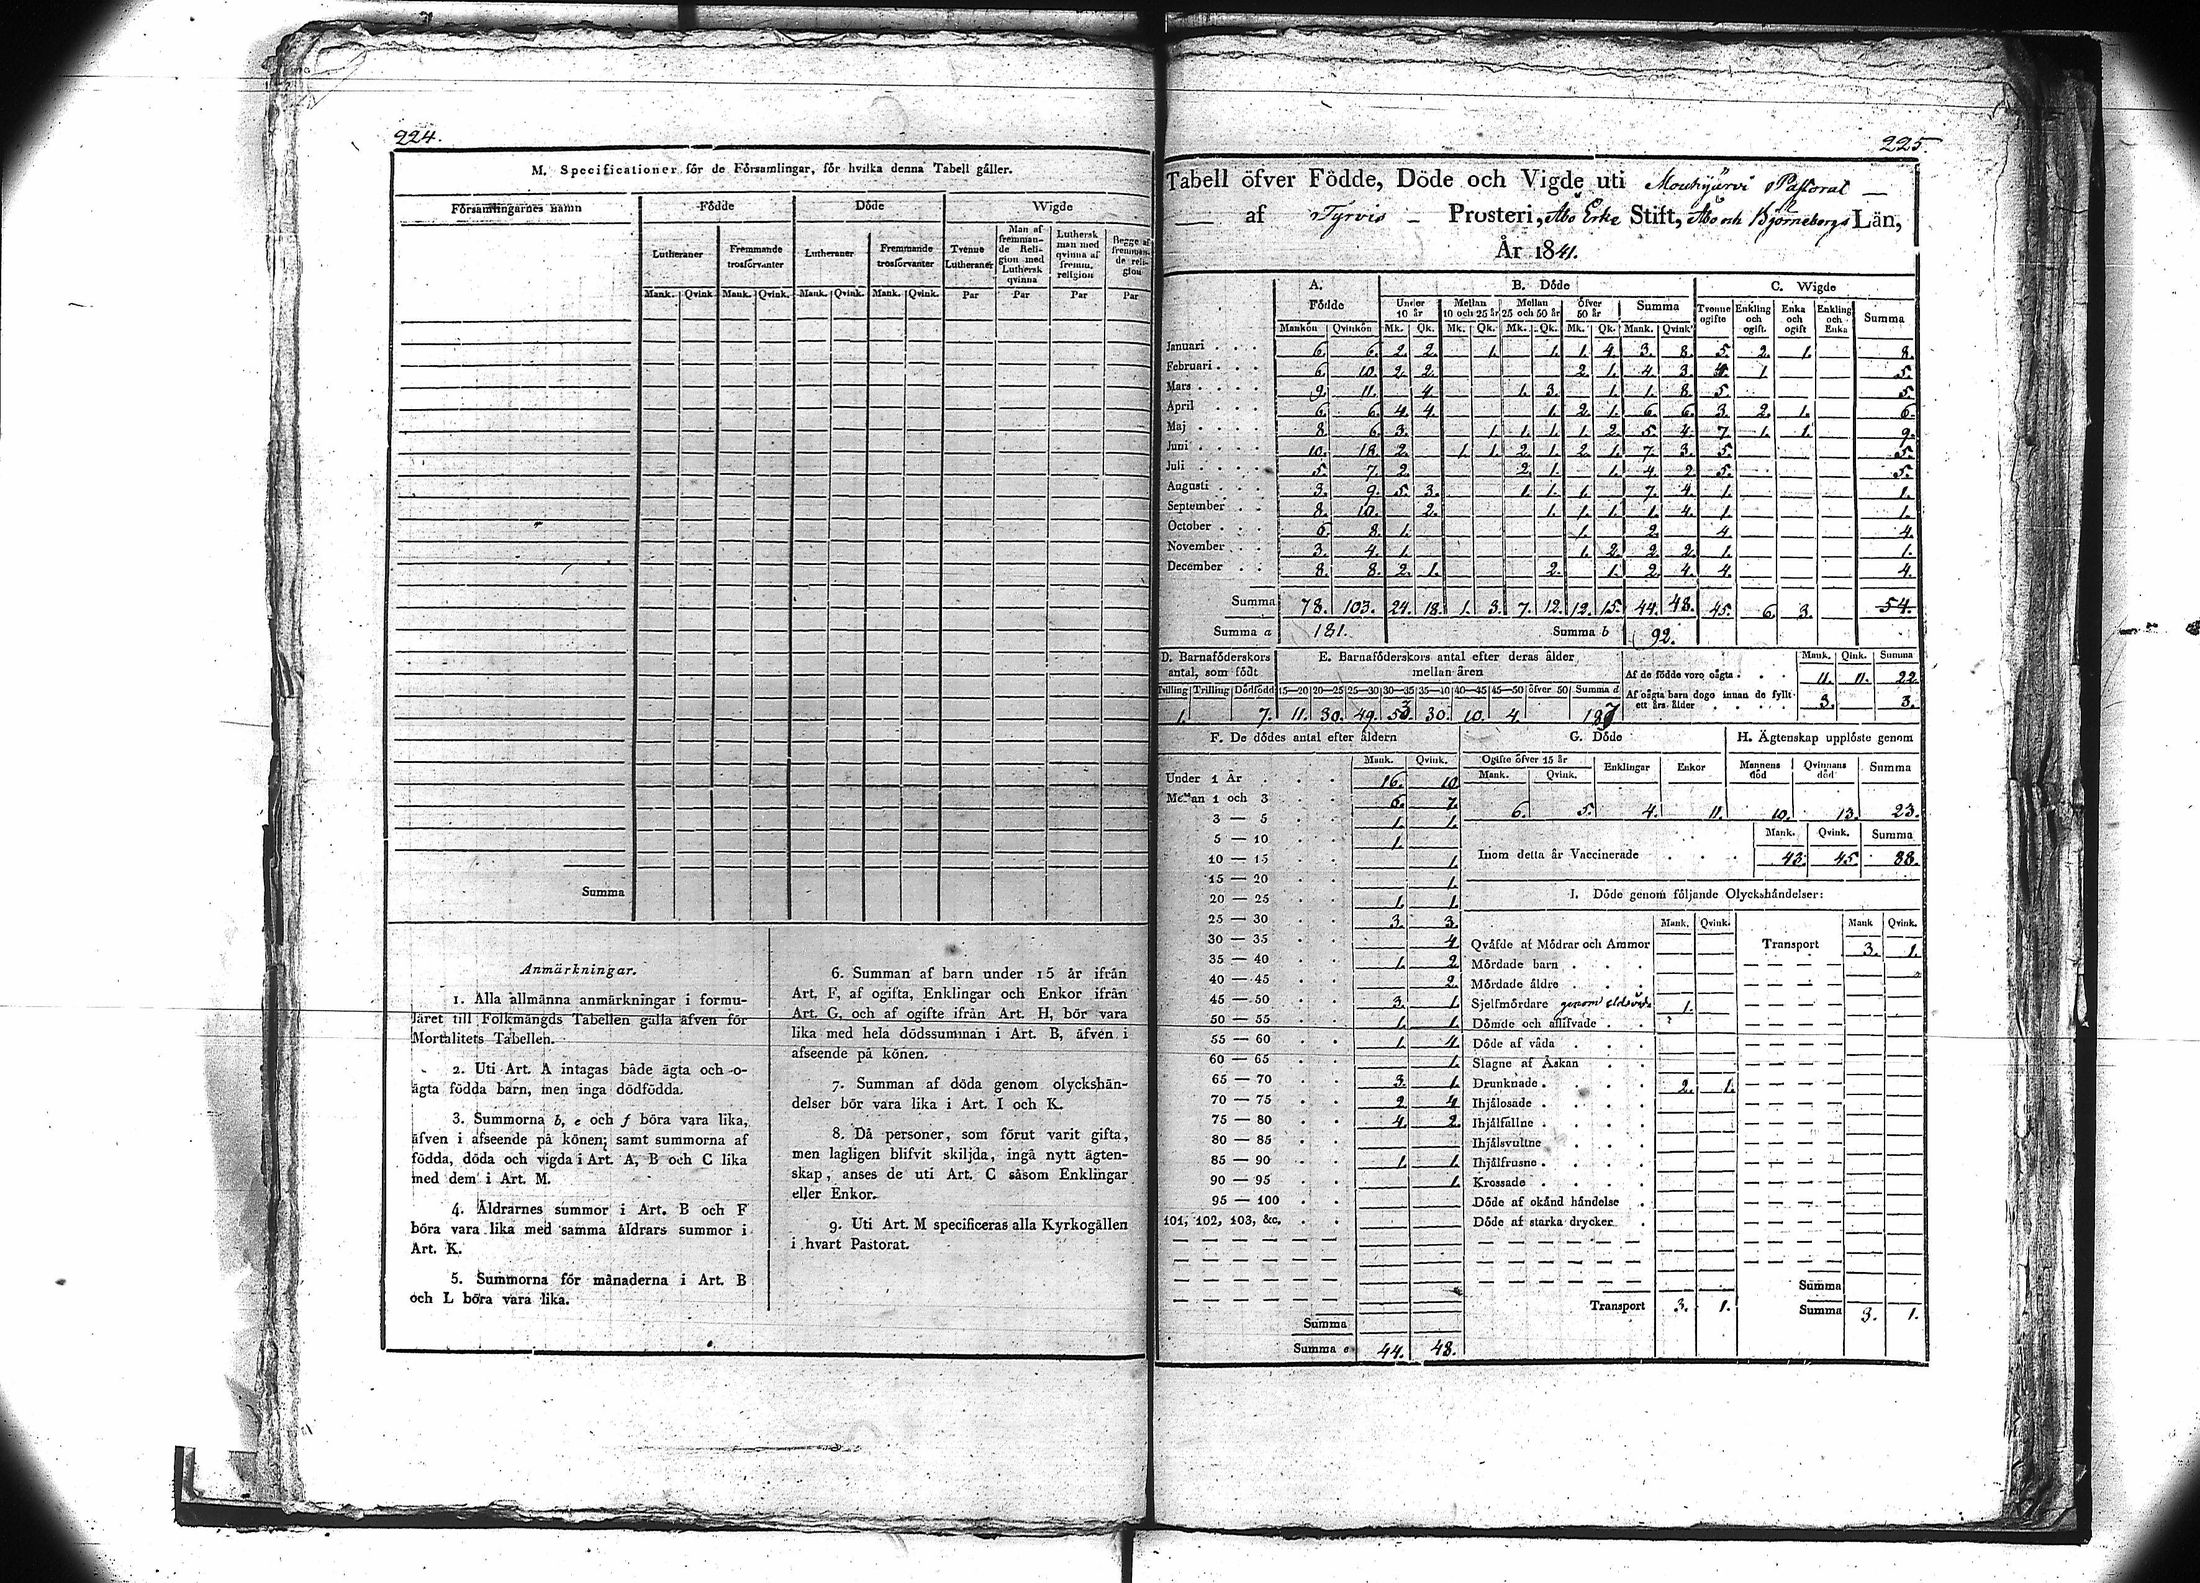 224.
M. Specificationer för de Församlingar, för hvilka denna Tabell gäller.
Församlingarnes namn | Födde | Döde | Wigde
Lutheraner | Fremmande trosförvanter | Lutheraner | Fremmande trosförvanter | Tvenne Lutheraner | Man af fremmande Religion med Luthersk qvinna | Luthersk man med qvinna af fremm. religion | Begge af fremmande religion
Mank. | Qvink | Mank. | Qvink. | Mank. | Qvink. | Mank. | Qvink. | Par | Par | Par | Par
Summa
Anmärkningar.
1. Alla allmänna anmärkningar i formu-
läret till Folkmängds Tabellen gälla äfven för
Mortalitets Tabellen.
2. Uti Art. A intagas både ägta och o-
ägta födda barn, men inga dödfödda.
3. Summorna b, e och f böra vara lika,
äfven i afseende på könen; samt summorna af
födda, döda och vigda i Art. A, B och C lika
med dem i Art. M.
4. Åldrarnes summor i Art. B och F
böra vara lika med samma åldrars summor i
Art. K.
5. Summorna för månaderna i Art. B
och L böra vara lika.
6. Summan af barn under 15 år ifrån
Art. F, af ogifta, Enklingar och Enkor ifrån
Art. G, och af ogifte ifrån Art. H, bör vara
lika med hela dödssumman i Art. B, äfven i
afseende på könen.
7. Summan af döda genom olyckshän-
delser bör vara lika i Art. I och K.
8. Då personer, som förut varit gifta,
men lagligen blifvit skiljda, ingå nytt ägten-
skap, anses de uti Art. C såsom Enklingar
eller Enkor.
9. Uti Art. M specificeras alla Kyrkogällen
i hvart Pastorat.
225
Tabell öfver Födde, Döde och Vigde uti Mouhijärvi Pastorat
af Tyrvis Prosteri, Åbo Erke Stift, Åbo och Björneborgs Län,
År 1841.
A. Födde | B. Döde | C. Wigde
Under 10 år | Mellan 10 och 25 år | Mellan 25 och 50 år | Öfver 50 år | Summa | Tvenne ogifte | Enkling och ogift. | Enka och ogift | Enkling och Enka | Summa
Mankön | Qvinkön | Mk. | Qk. | Mk. | Qk. | Mk. | Qk. | Mk. | Qk. | Mank. | Qvink.
Januari . . . 6. 6. 2. 2. 1. 1. 1. 4. 3. 8. 5. 2. 1. 8.
Februari . . . 6. 10. 2. 2. 2. 1. 4. 3. 4. 1 5.
Mars . . . . 9. 11. 4. 1. 3. 1. 1. 8. 5. 5.
April . . . 6. 6. 4. 4. 1. 2. 1. 6. 6. 3. 2. 1. 6.
Maj . . . . 8. 6. 3. 1. 1. 1. 1. 2. 5. 4. 7. 1. 1. 9.
Juni . . . . 10. 18. 2. 1. 1. 2. 1. 2. 1. 7. 3. 5. 5.
Juli . . . . 5. 7. 2. 2. 1. 1. 4. 2. 5. 5.
Augusti . . . 3. 9. 5. 3. 1. 1. 1. 7. 4. 1. 1.
September . . 8. 10. 2. 1. 1. 1. 1. 4. 1. 1.
October . . . 6. 8. 1. 1. 2. 4. 4.
November . . 3. 4. 1. 1. 2. 2. 2. 1. 1.
December . . 8. 8. 2. 1. 2. 1. 2. 4. 4. 4.
Summa 78. 103. 24. 18. 1. 3. 7. 12. 12. 15. 44. 48. 45. 6. 3. 54.
Summa a 181. Summa b 92.
D. Barnaföderskors antal, som födt | E. Barnaföderskors antal efter deras ålder mellan åren
Tvilling | Trilling | Dödfödd | 15—20 | 20—25 | 25—30 | 30—35 | 35—40 | 40—45 | 45—50 | öfver 50 | Summa d
1. 7. 11. 30. 49. 53. 30. 10. 4. 187
Mank. | Qink. | Summa
Af de födde voro oägta . . . 11. 11. 22
Af oägta barn dogo innan de fyllt ett års ålder . . . . 3. 3.
F. De dödes antal efter åldern
Mank. | Qvink.
Under 1 År . . . 16. 10
Mellan 1 och 3 . . 6. 7.
3 — 5 . . 1. 1.
5 — 10 . . 1.
10 — 15 . . 1.
15 — 20 . . 1.
20 — 25 . . 1. 1.
25 — 30 . . 3. 3.
30 — 35 . . 4
35 — 40 . . 1. 2
40 — 45 . . 2.
45 — 50 . . 3. 1.
50 — 55 . . 1. 1.
55 — 60 . . 1. 4.
60 — 65 . . 1.
65 — 70 . . 3. 1.
70 — 75 . . 2 4
75 — 80 . . 4. 2.
80 — 85 . .
85 — 90 . . 1. 1.
90 — 95 . . 1.
95 — 100 . .
101, 102, 103, &c. . .
Summa
Summa e 44. 48.
G. Döde
Ogifte öfver 15 år | Enklingar | Enkor
Mank. | Qvink.
6. 5. 4. 11.
H. Ägtenskap upplöste genom
Mannens död | Qvinnans död | Summa
10. 13. 23.
Mank. | Qvink. | Summa
Inom detta år Vaccinerade . . . 43. 45. 88.
I. Döde genom följande Olyckshändelser:
Mank. | Qvink. | Mank | Qvink.
Qväfde af Mödrar och Ammor | Transport 3. 1.
Mördade barn . . .
Mördade äldre . . .
Sjelfmördare genom 1.
Dömde och aflifvade . .
Döde af våda . . .
Slagne af Åskan . .
Drunknade . . . . 2. 1.
Ihjälosade . . . .
Ihjälfallne . . . .
Ihjälsvultne . . .
Ihjälfrusne . . . .
Krossade . . . .
Döde af okänd händelse .
Döde af starka drycker .
Summa
Transport 3. 1. Summa 3. 1.